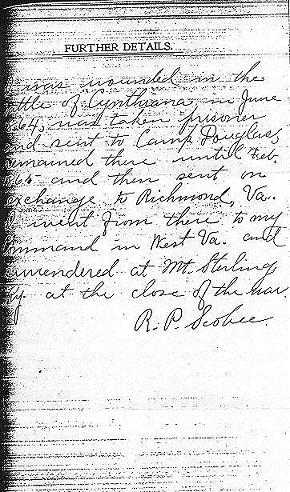 FURTHER DETAILS.
was wounded in the
ttle of Cynthiana, in June
64, was taken prisoner
nd sent to Camp Douglas,
emained there until Feb.
and then sent on
xchange to Richmond, Va.
I went from there to my
mmand in West Va. and
urrendered at Mt. Sterling
Ky at the close of the war.
R. P. Scobee.